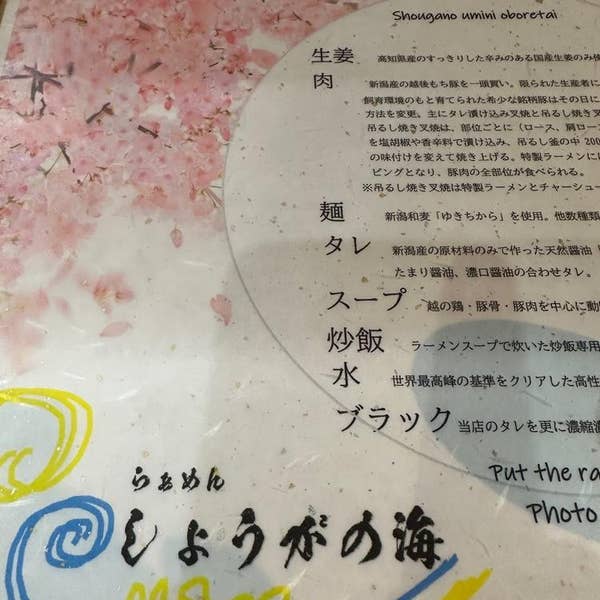 Shougano umini oboretai
生姜 高知県産のすっきりした辛みのある国産生姜のみ使
肉 新潟産の越後もち豚を一頭買い。限られた生産者に
飼育環境のもと育てられた希少な銘柄豚はその日に
方法を変更。主にタレ漬け込み叉焼と吊るし焼き叉
吊るし焼き叉焼は、部位ごとに（ロース、肩ロー
を塩胡椒や香辛料で漬け込み、吊るし釜の中 200
の味付けを変えて焼き上げる。特製ラーメンには
ピングとなり、豚肉の全部位が食べられる。
※吊るし焼き叉焼は特製ラーメンとチャーシュー
麺 新潟和麦「ゆきちから」を使用。他数種類
タレ 新潟産の原材料のみで作った天然醤油「
たまり醤油、濃口醤油の合わせタレ。
スープ 越の鶏・豚骨・豚肉を中心に動
炒飯 ラーメンスープで炊いた炒飯専用
水 世界最高峰の基準をクリアした高性
ブラック 当店のタレを更に濃縮濃
Put the ra
Photo
らぁめん
しょうがの海